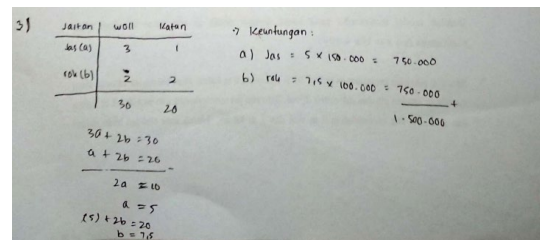 3)
Jaitan | woll | katan
Jas (a) 3 1
rok (b) 2 2
30 20
3a + 2b = 30
a + 2b = 20
2a = 10
a = 5
(5) + 2b = 20
b = 7,5
→ Keuntungan :
a) Jas = 5 x 150.000 = 750.000
b) rok = 7,5 x 100.000 = 750.000
+
1.500.000